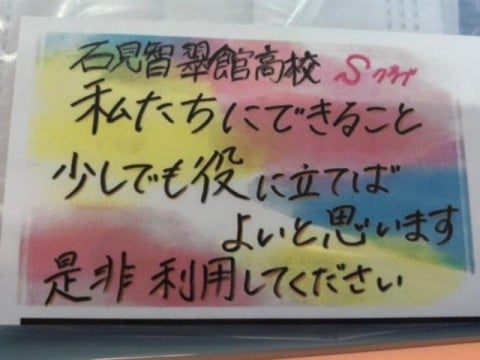 石見智翠館高校 Sクラブ
私たちにできること
少しでも役に立てば
よいと思います
是非利用してください